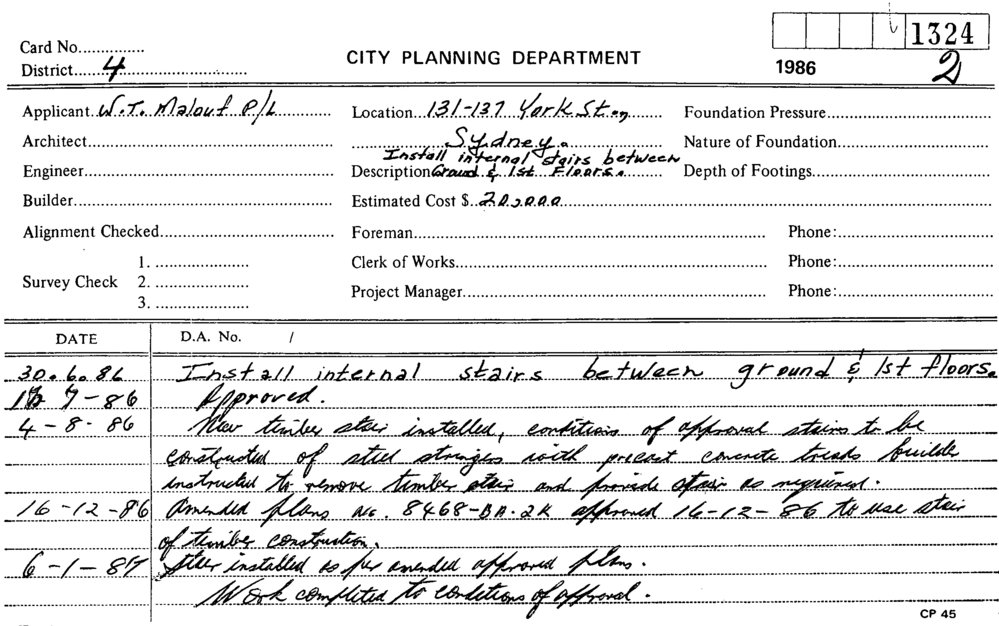 1324
Card No...............
CITY PLANNING DEPARTMENT
District.....4...............
1986
2
Applicant W.T. Malouf P/L
Location 131-137 York St.,
Foundation Pressure
Architect
Sydney.
Nature of Foundation
Install internal stairs between
Engineer
Description Ground & 1st Floors.
Depth of Footings
Builder
Estimated Cost $ 20,000
Alignment Checked
Foreman
Phone:
1.
Clerk of Works
Phone:
Survey Check 2.
Project Manager
Phone:
3.
DATE
D.A. No. /
30.6.86 Install internal stairs between ground & 1st floors.
7-86 Approved.
4-8-86 New timber stair installed, conditions of approval stairs to be
constructed of steel stringers with precast concrete treads builder
instructed to remove timber stair and provide stair as required.
16-12-86 Amended plans no. 8468-BA-2K approved 16-12-86 to use stair
of timber construction.
6-1-87 Stair installed as per amended approved plans.
Work completed to conditions of approval.
CP 45